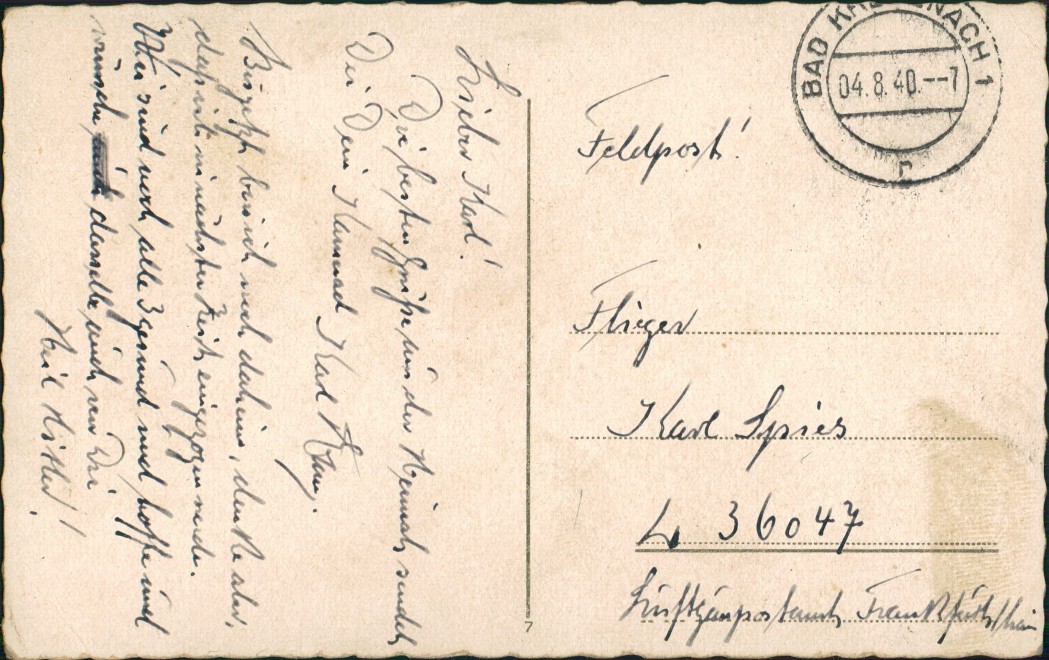 Lieber Karl!
Die besten Grüße aus der Heimat sendet
Dir Dein Kamerad Karl
Bis jetzt bin ich noch daheim, denke aber,
daß ich in nächster Zeit eingezogen werde.
Wir sind noch alle 3 gesund und hoffe und
wünsche dasselbe auch von Dir.
Heil Hitler!
BAD KREUZNACH 1
04.8.40.--7
r
Feldpost!
Flieger
Karl Spies
L 36047
Luftgaupostamt Frankfurt/Main
7